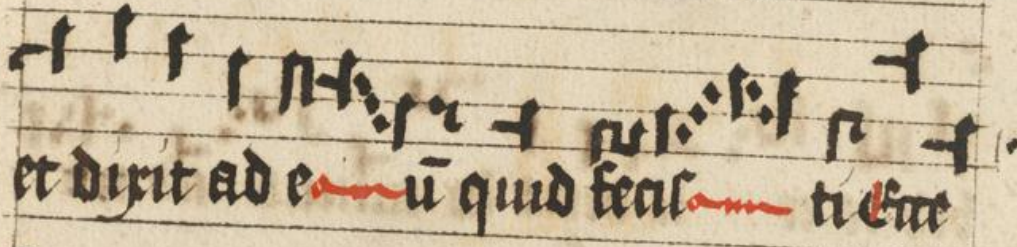 et dixit ad e ū quid fecis ti Ecce